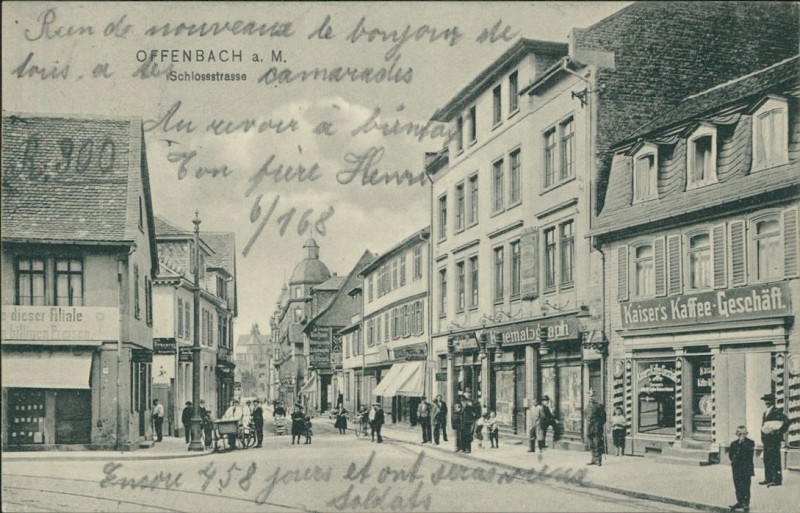 Rien de nouveaux le bonjour de
OFFENBACH a. M.
Schlossstrasse
tous, a tes camarades
Au revoir à bientôt
Ton frère Henri
6/168
R. 300
dieser Filiale
billigen Preisen
Kinematograph
Kaiser's Kaffee-Geschäft.
Encore 458 jours et ont seras
Soldats